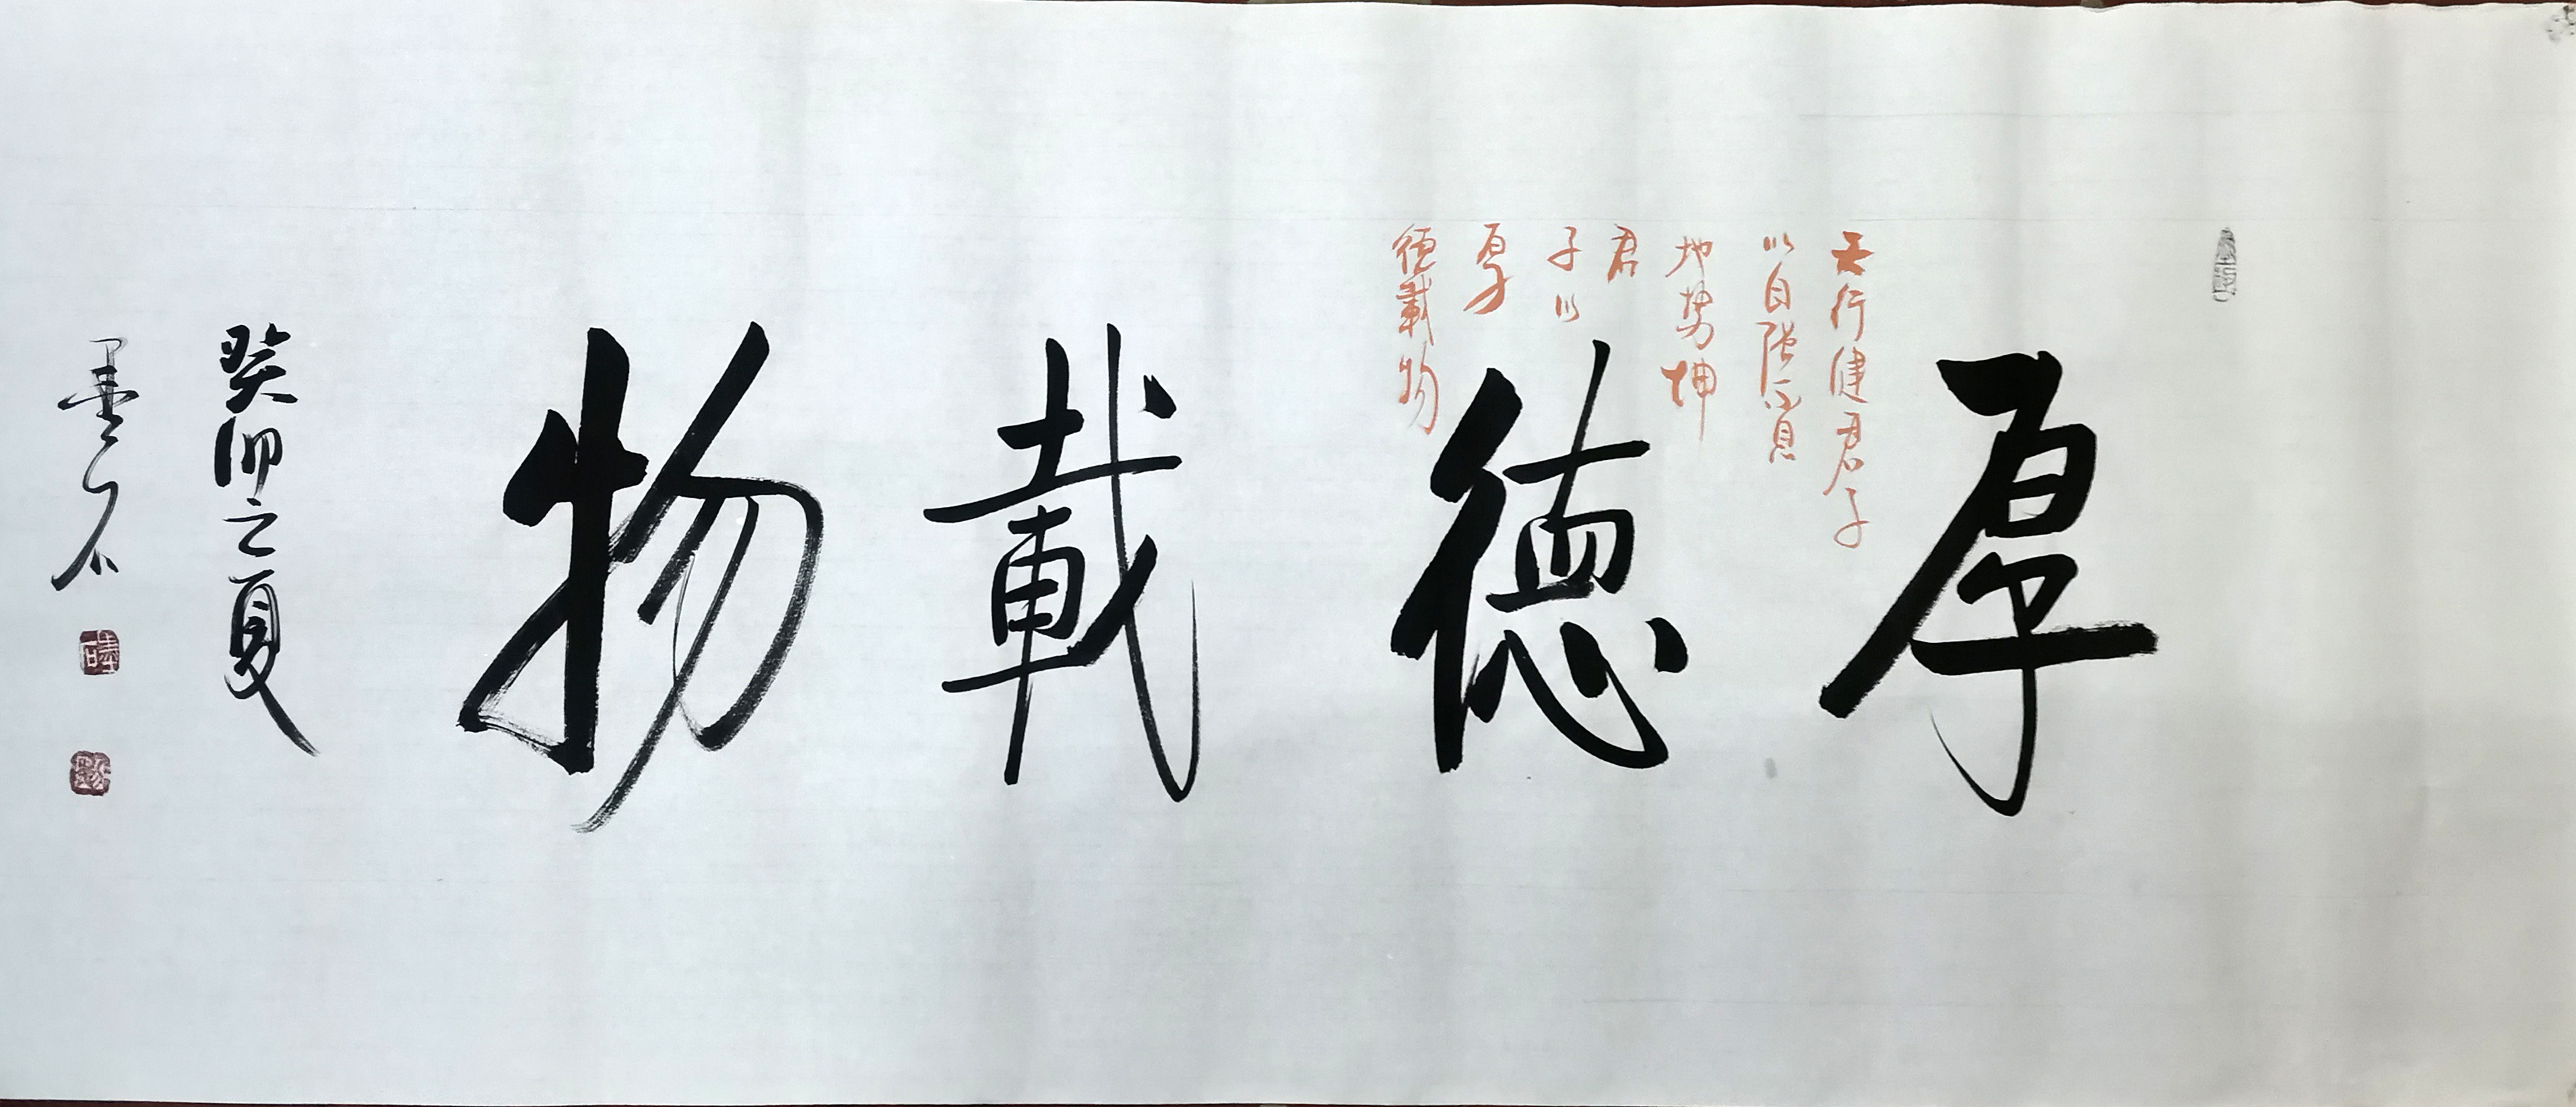 厚德載物
天行健君子
以自強不息
地势坤
君
子以
厚
德載物
癸卯之夏
墨石